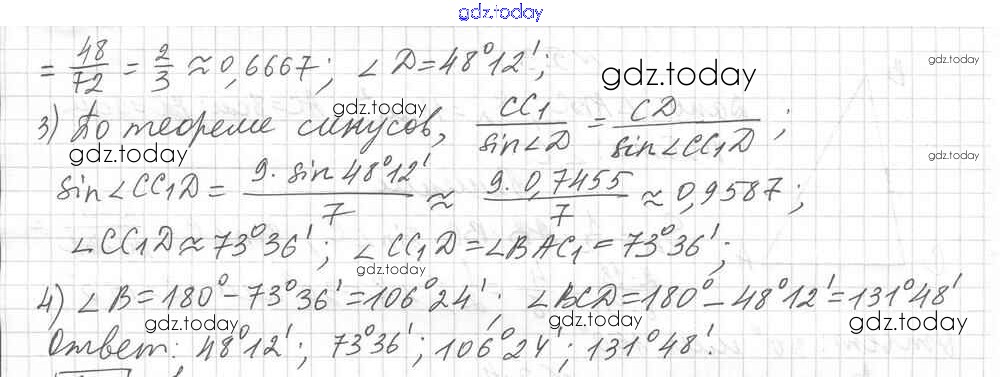 gdz.today
= 48/72 = 2/3 ≈ 0,6667; ∠D = 48°12′;
gdz.today
gdz.today
gdz.today
3) По теореме синусов, CC1/sin∠D = CD/sin∠CC1D ;
gdz.today
gdz.today
sin∠CC1D = 9·sin48°12′/7 ≈ 9·0,7455/7 ≈ 0,9587;
∠CC1D ≈ 73°36′; ∠CC1D = ∠BAC1 = 73°36′;
gdz.today
4) ∠B = 180° − 73°36′ = 106°24′; ∠BCD = 180° − 48°12′ = 131°48′
gdz.today
gdz.today
gdz.today
Ответ: 48°12′; 73°36′; 106°24′; 131°48′.